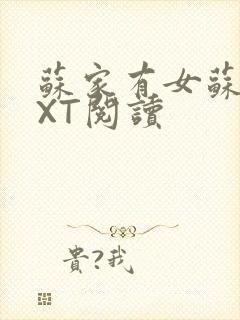 蘇家有女蘇
XT閱讀
貴?我